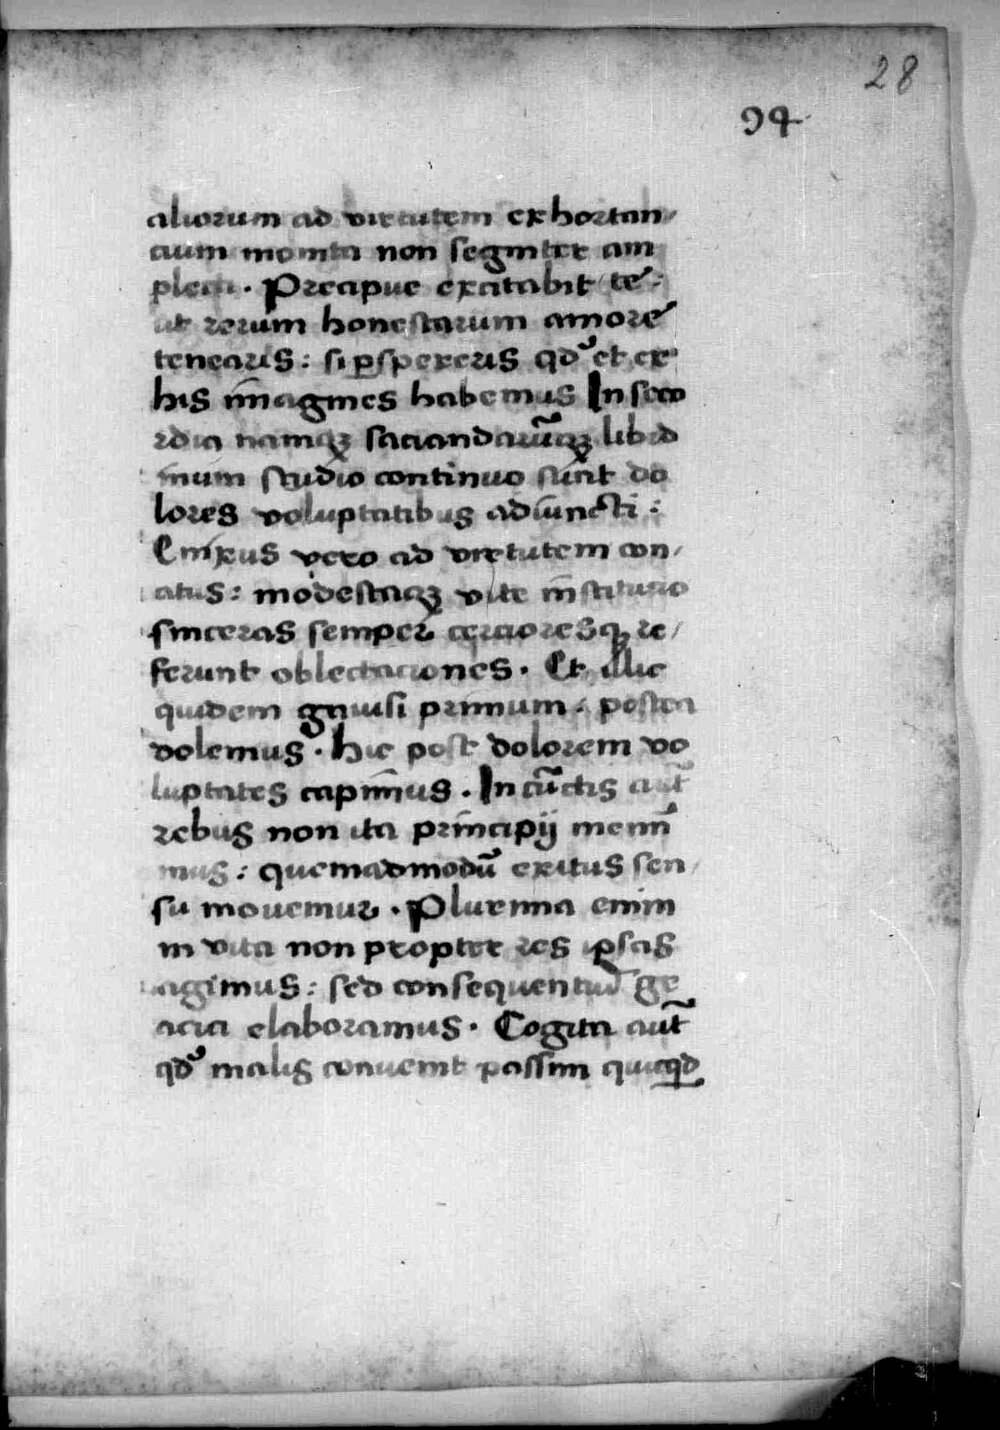 28
94
aliorum ad virtutem exhortan/
cium monita non segniter am
plecti. Precipue excitabit te:
ut rerum honestarum amore᷄
tenearis: si ꝑspexeris qd᷄ et ex
his īmagines habemus In seco
rdia namqꝫ saciandarūqꝫ libid
inum studio continuo sunt do
lores voluptatibus adiuncti:
Enixus vero ad virtutem con/
atus: modestaqꝫ vite institutio
sinceras semper certioresqꝫ re/
ferunt oblectaciones. Et illic
quidem gavisi primum: postea
dolemus. hic post dolorem vo
luptates capimus. In cūctis aūt
rebus non ita principij memi
mus: quemadmodū exitus sen/
su movemur. Plurima enim
in vita non propter res ipsas
agimus: sed consequentiū gr
acia elaboramus. Cogita aūt
qd᷄ malis convenit passim quicqd